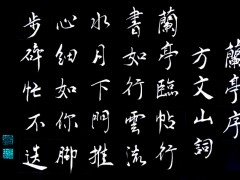 蘭亭序
方文山詞
蘭亭臨帖行
書如行雲流
水月下門推
心細如你腳
步碎忙不迭